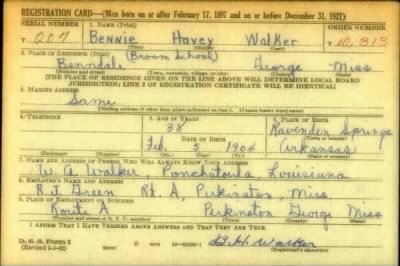 REGISTRATION CARD—(Men born on or after February 17, 1897 and on or before December 31, 1921)
SERIAL NUMBER 1. NAME (Print) ORDER NUMBER
T 207 Bennie Havey Walker T 10,313
(First) (Middle) (Last)
2. PLACE OF RESIDENCE (Print) (Broom School)
Benndale George Miss
(Number and street) (Town, township, village, or city) (County) (State)
[THE PLACE OF RESIDENCE GIVEN ON THE LINE ABOVE WILL DETERMINE LOCAL BOARD
JURISDICTION; LINE 2 OF REGISTRATION CERTIFICATE WILL BE IDENTICAL]
3. MAILING ADDRESS
Same
[Mailing address if other than place indicated on line 2. If same insert word same]
4. TELEPHONE 5. AGE IN YEARS 6. PLACE OF BIRTH
38 Ravenden Springs
DATE OF BIRTH
Feb. 5 1904 Arkansas
(Mo.) (Day) (Yr.) (State or country)
7. NAME AND ADDRESS OF PERSON WHO WILL ALWAYS KNOW YOUR ADDRESS
W. A. Walker Ponchatoula, Louisiana
8. EMPLOYER'S NAME AND ADDRESS
R. J. Green Rt. A, Perkinston, Miss.
9. PLACE OF EMPLOYMENT OR BUSINESS
Route A Perkinston George Miss
(Number and street or R. F. D. number) (Town) (County) (State)
I AFFIRM THAT I HAVE VERIFIED ABOVE ANSWERS AND THAT THEY ARE TRUE.
D. S. S. Form 1 B. H. Walker
(Revised 1-1-42) (over) (Registrant's signature)